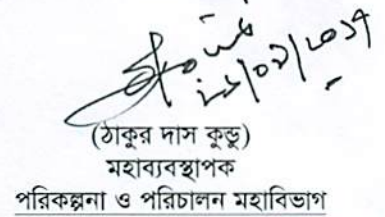 (ঠাকুর দাস কুন্ডু)
মহাব্যবস্থাপক
পরিকল্পনা ও পরিচালন মহাবিভাগ